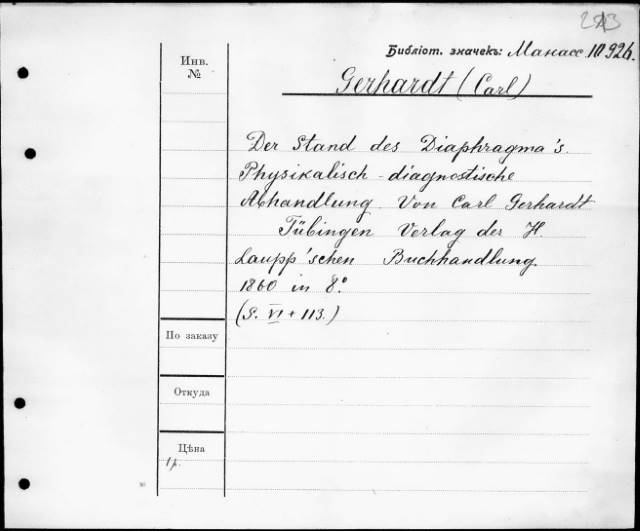 Библіот. значекъ: Манасс 10.926.
Инв.
№
Gerhardt (Carl)
Der Stand des Diaphragma's.
Physikalisch-diagnostische
Abhandlung. Von Carl Gerhardt
Tübingen Verlag der H.
Laupp'schen Buchhandlung.
1860 in 8°.
(S. VI + 113.)
По заказу
Откуда
Цѣна
1 р.